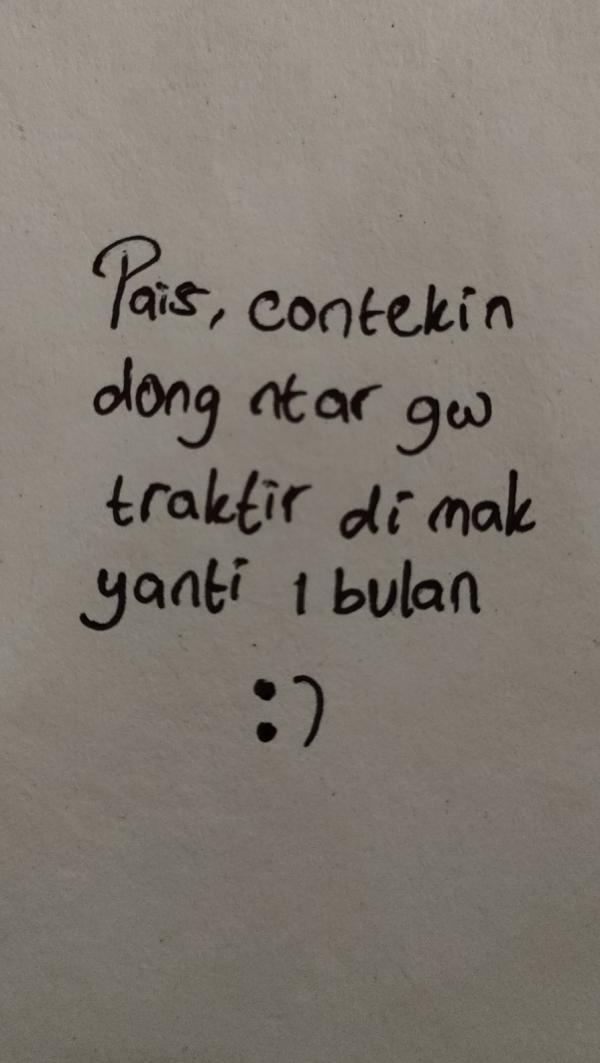 Pais, contekin
dong ntar gw
traktir di mak
yanti 1 bulan
:)